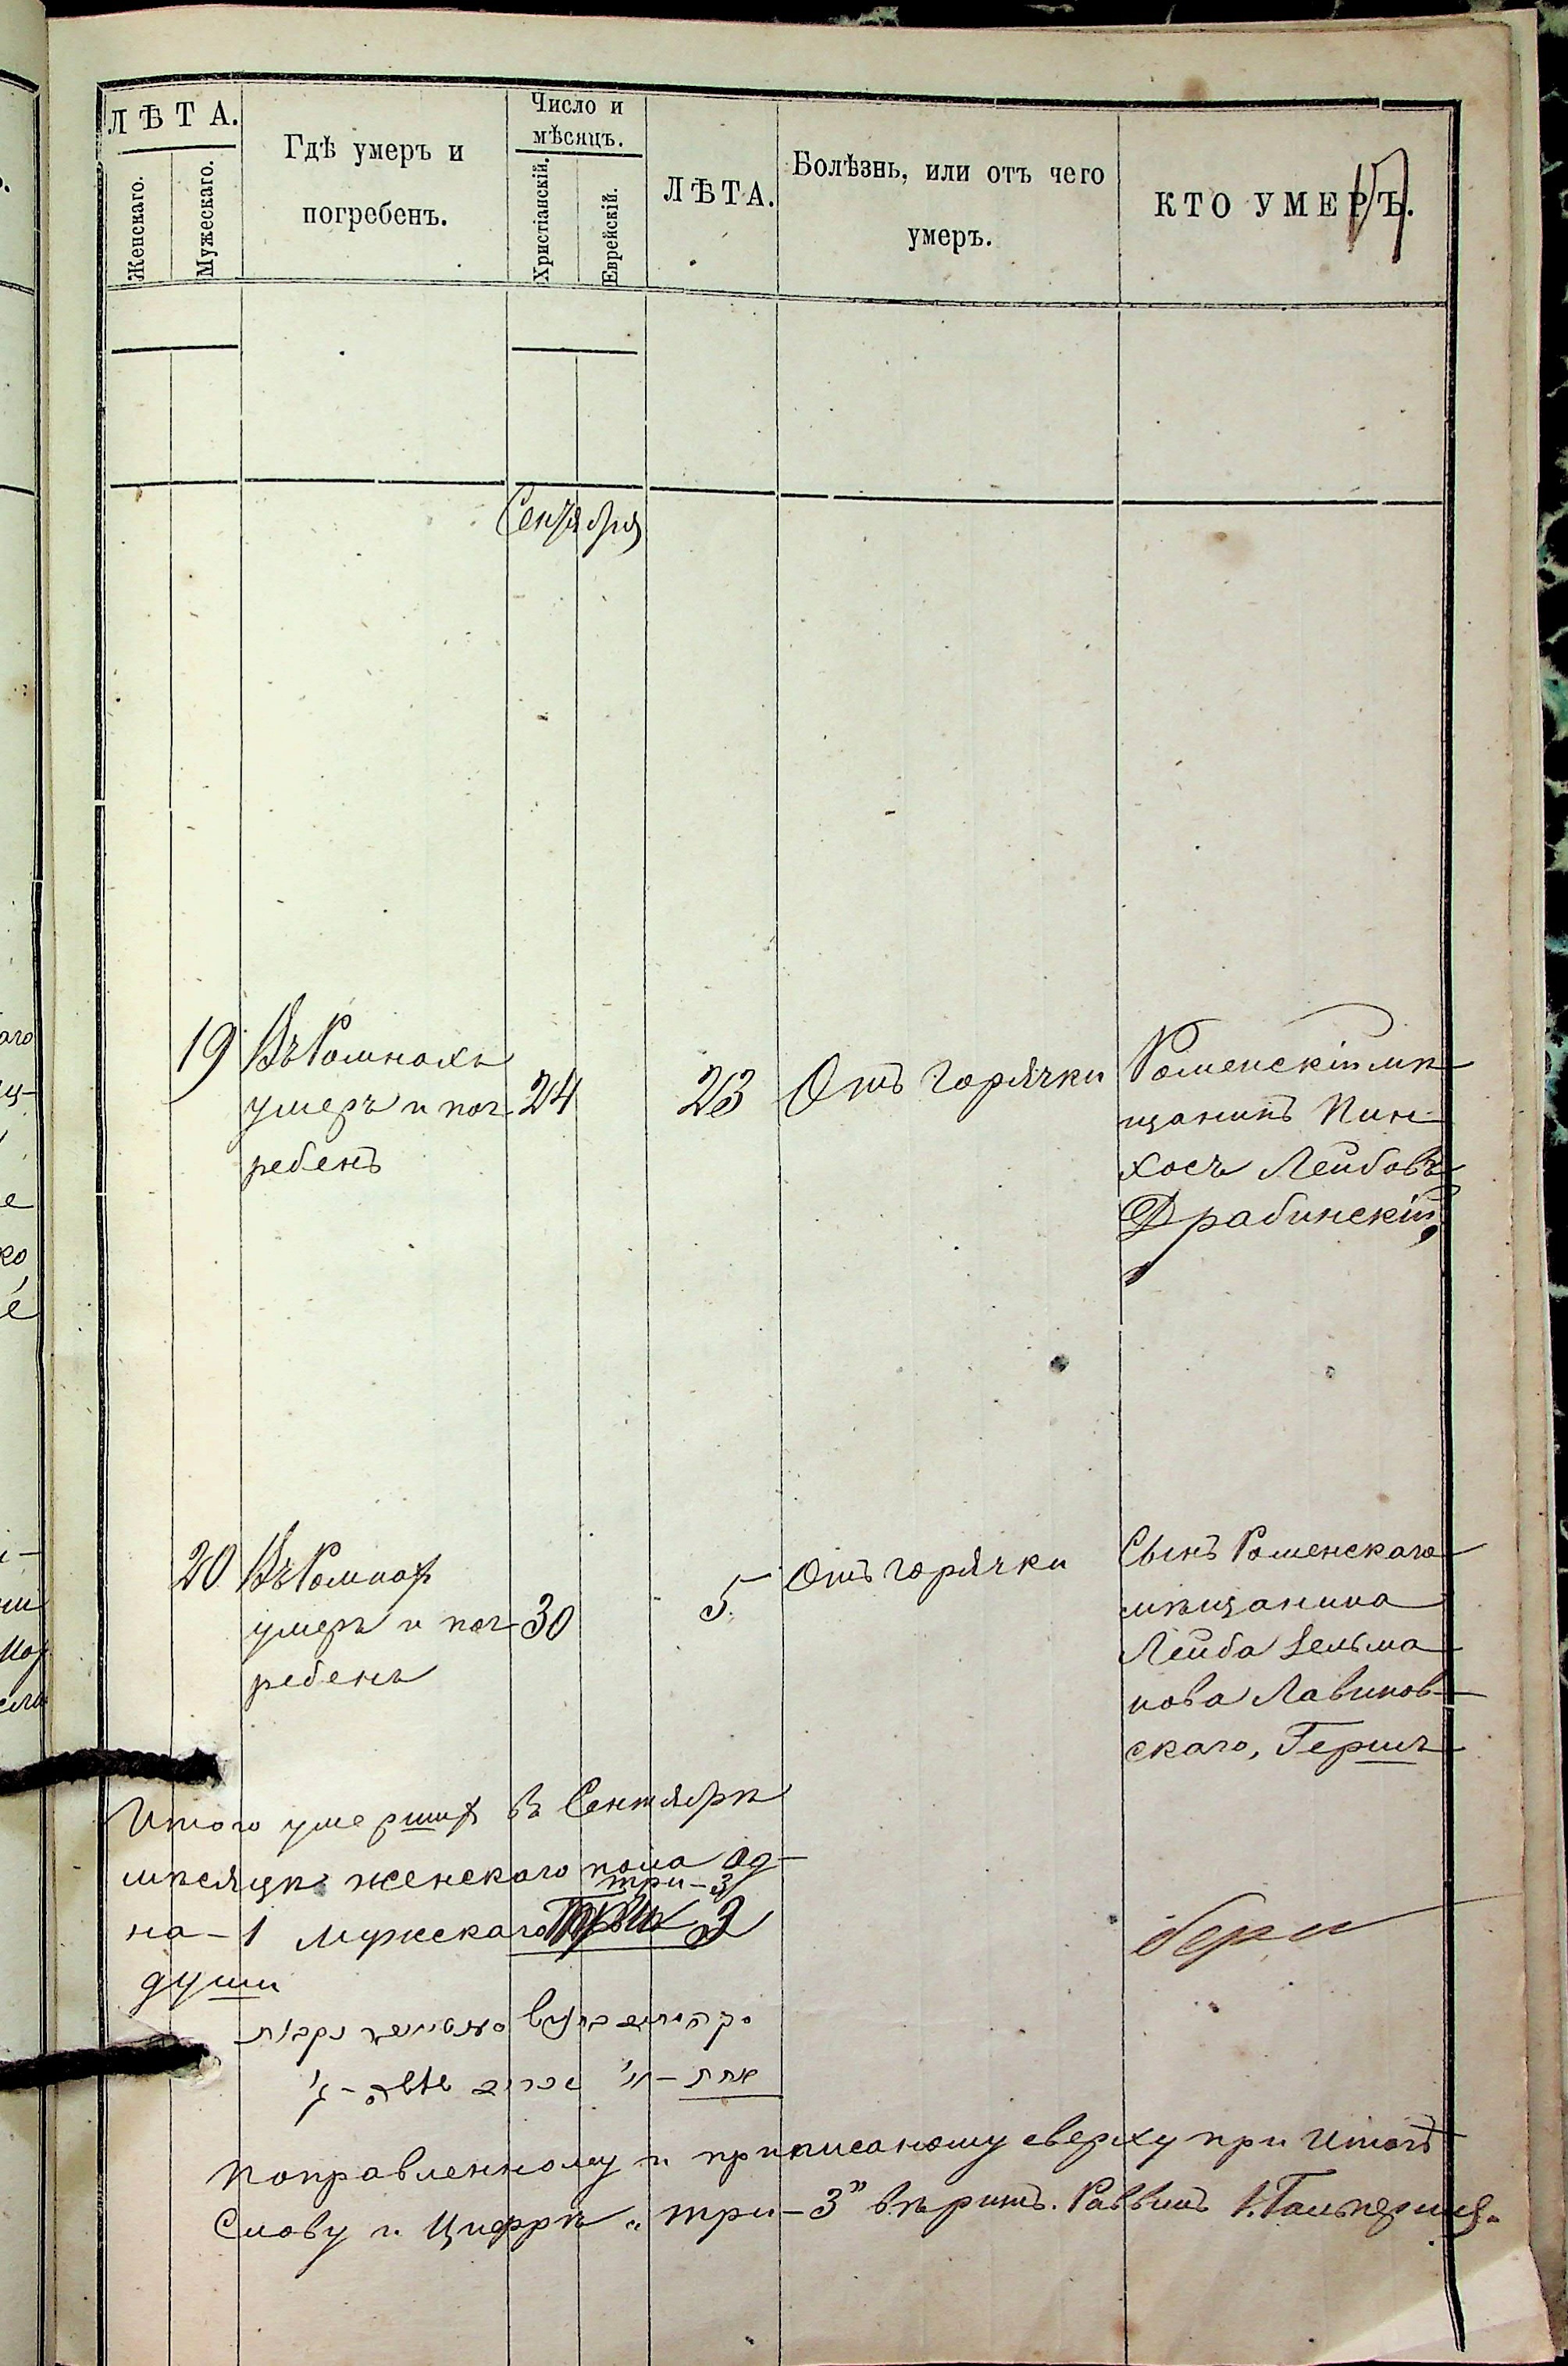 ЛѢТА.
Женскаго.
Мужескаго.
Гдѣ умеръ и
погребенъ.
Число и
мѣсяцъ.
Христіанскій.
Еврейскій.
ЛѢТА.
Болѣзнь, или отъ чего
умеръ.
КТО УМЕРЪ.
17
Сентября
19
Въ Ромнахъ
умеръ и пог-
ребенъ
24
23
Отъ горячки
Роменскій мѣ-
щанинъ Пин-
хосъ Лейбовъ
Драбинскій,
20
Въ Ромнах
умеръ и пог-
ребенъ
30
5.
Отъ горячки
Сынъ Роменскаго
мѣщанина
Лейба Зельма
нова Лавинов-
скаго, Гершъ
Итого умерших въ Сентябрѣ
мѣсяцѣ женскаго пола од-
три-3
на-1 мужскаго
души
Поправленному и приписаному сверху при Итогѣ
Слову и Цифрѣ „три-3" вѣрить. Раввинъ